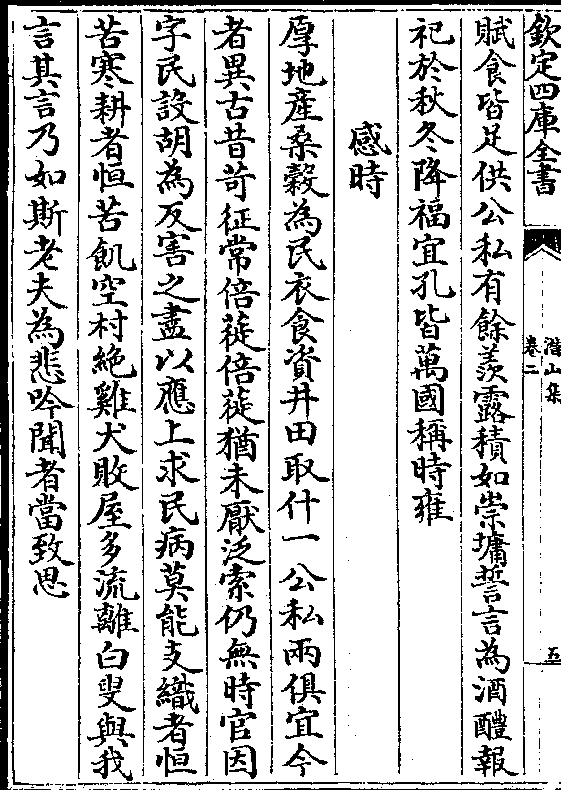 欽定四庫全書
潛山集
卷二
五
賦食皆足供公私有餘羨露積如崇墉誓言為酒醴報
祀於秋冬降福宜孔皆萬國稱時雍
感時
厚地產桑穀為民衣食資井田取什一公私兩俱宜今
者異古昔苛征常倍蓰倍蓰猶未厭泛索仍無時官因
字民設胡為反害之盡以應上求民病莫能支織者恒
苦寒耕者恒苦飢空村絶雞犬敗屋多流離白叟與我
言其言乃如斯老夫為悲吟聞者當致思